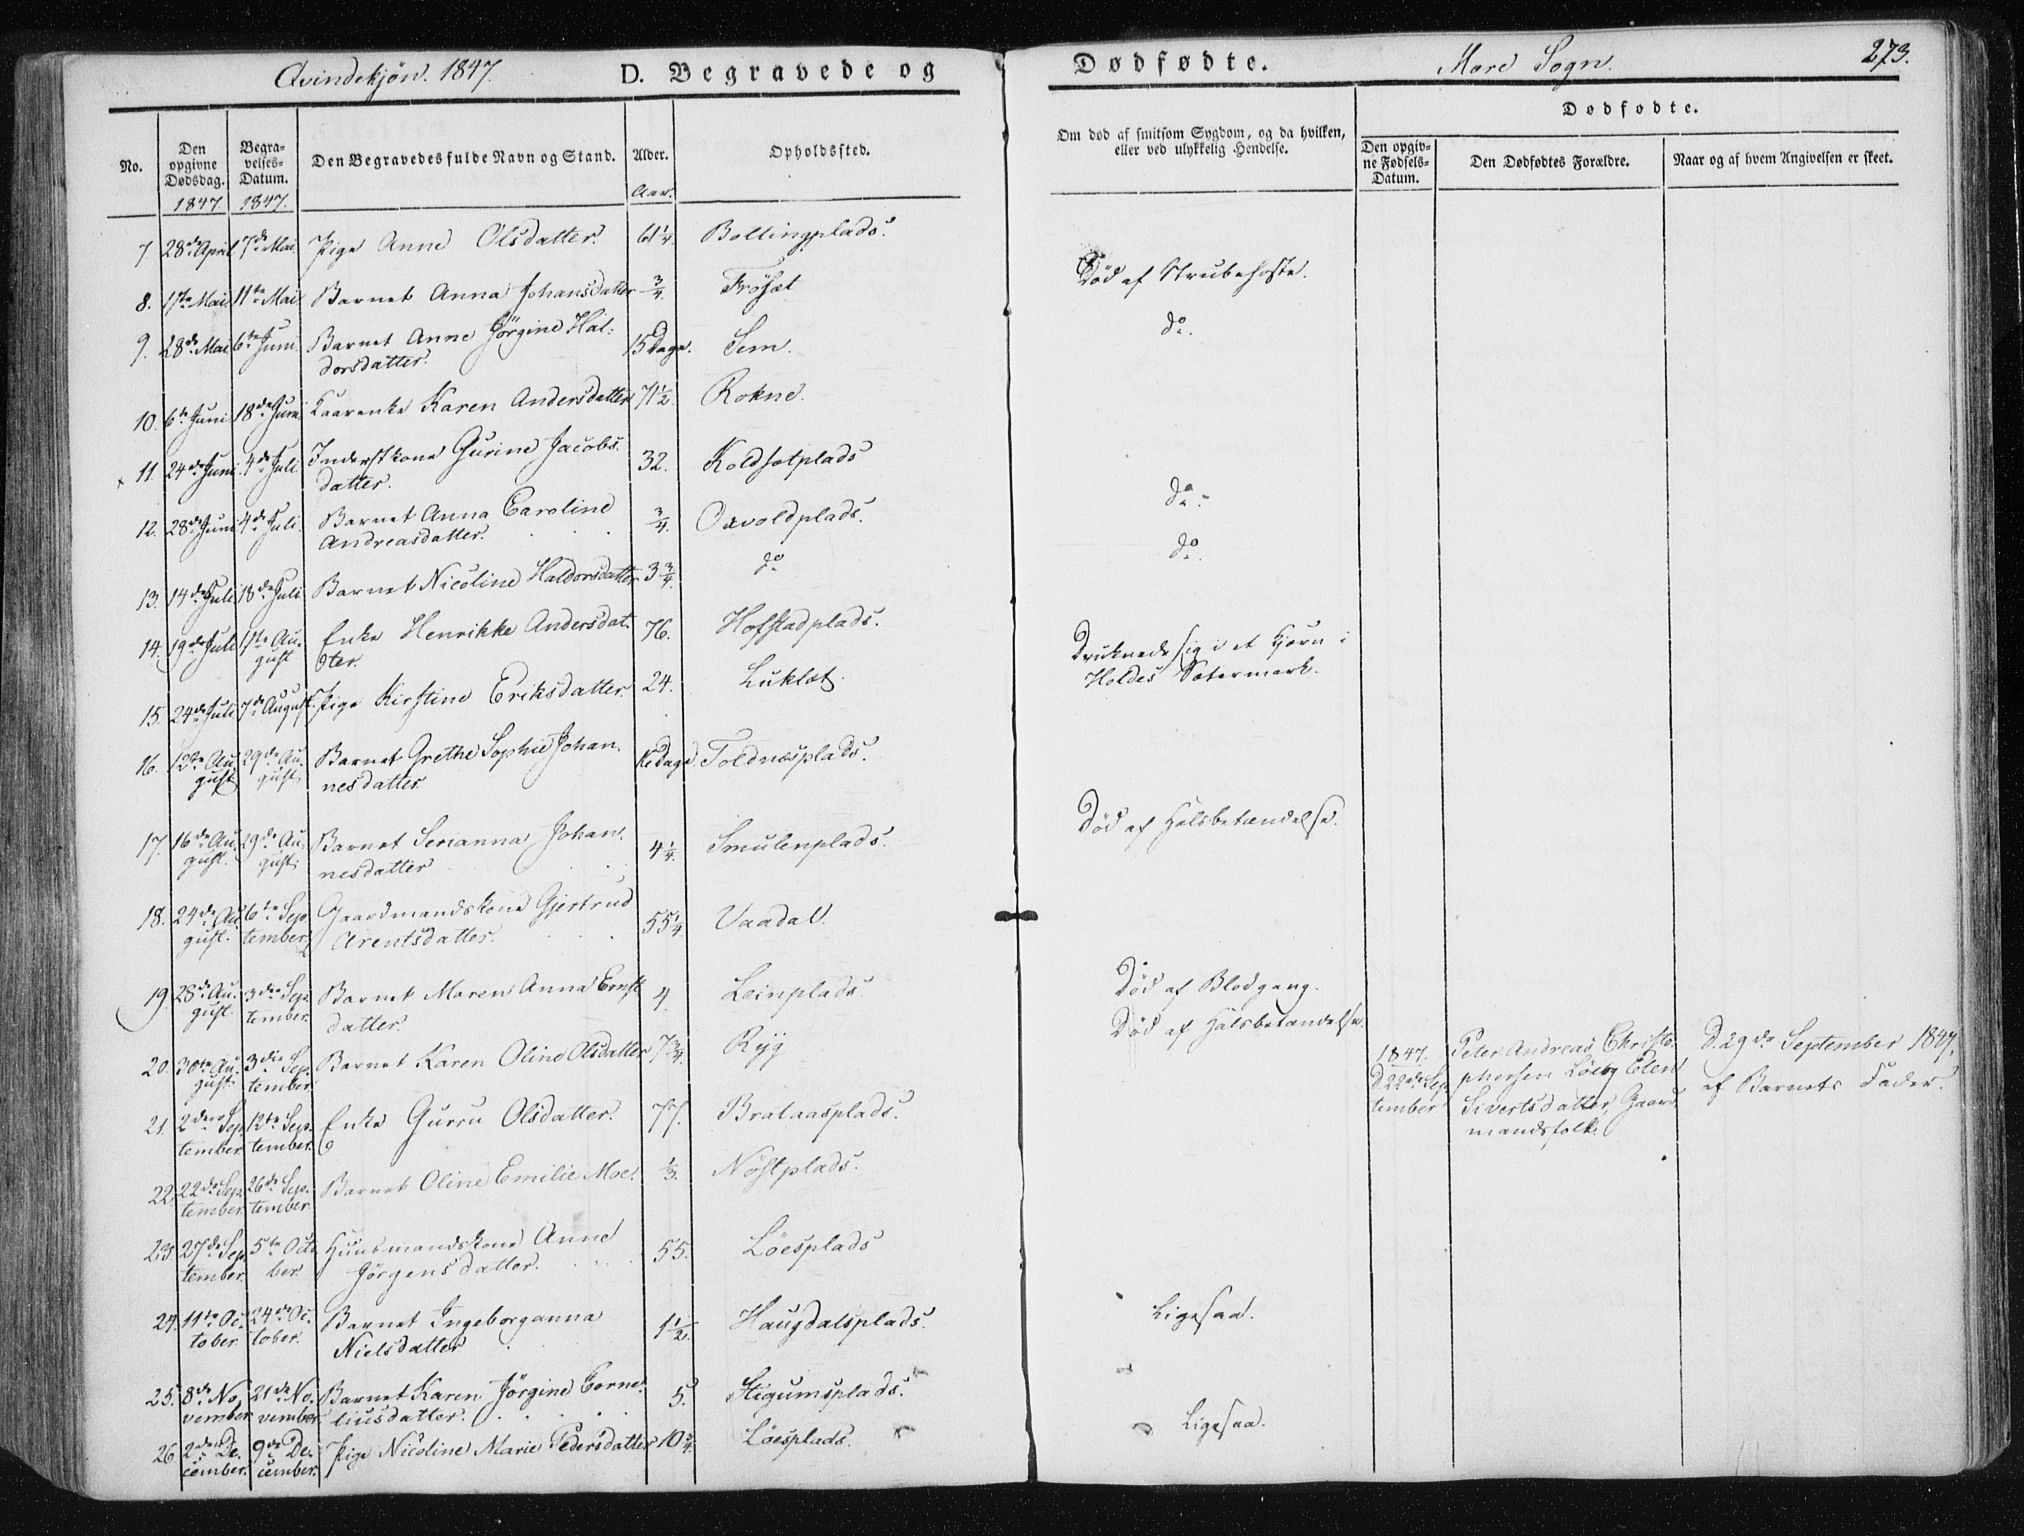 Qvindekjøn. 1847. D. Begravede og Dødfødte. Mære Sogn. 273.
No.
Den opgivne Dødsdag. 1847.
Begravelses-Datum. 1847.
Den Begravedes fulde Navn og Stand.
Alder. Aar.
Opholdssted.
Om død af smitsom Sygdom, og da hvilken,
eller ved ulykkelig Hendelse.
Dødfødte.
Den opgivne Fødsels-Datum.
Den Dødfødtes Forældre.
Naar og af hvem Angivelsen er skeet.
7. 28de April 7de Mai. Pige Anne Olsdatter. 61 1/4. Bollingplads.
8. 1ste Mai 11te Mai Barnet Anna Johansdatter 3/4. Frøset Død af Strubehoste.
9. 28de Mai 6te Juni. Barnet Anne Jørgine Hal-
dorsdatter. 15 Dage. Sem. do.
10. 6te Juni 18de Juni Kaarenke Karen Andersdatter 71 1/2. Rokne.
11. 24de Juni 4de Juli. Inderstkone Gurine Jacobs-
datter. 32. Koldsetplads
12. 28de Juni 4de Juli. Barnet Anna Caroline
Andreasdatter. 3/4. Oxvoldplads. do.
13. 14de Juli 18de Juli Barnet Nicoline Haldorsdatter 3 3/4. do do.
14. 19de Juli 1ste Au-
gust Enke Henrikke Andersdat-
ter. 76. Hofstadplads.
15. 24de Juli 7de August. Pige Kirstine Eriksdatter. 24. Luklæt. Druknede sig i et Kjørn i
Holdes Sætermark.
16. 12te Au-
gust 29de Au-
gust Barnet Grethe Sophie Johan-
nesdatter. Dage. Foldnæsplads.
17. 16de Au-
gust. 29de Au-
gust. Barnet Serianna Johan-
nesdatter 4 1/4. Smulenplads. Død af Halsbetændelse.
18. 24de Au-
gust. 6te Sep-
tember. Gaardmandskone Gjertrud
Arentsdatter. 55 1/4. Vaadal.
19. 28de Au-
gust. 3die Sep-
tember. Barnet Maren Anna Ernst-
datter. 4 Leinplads. Død af Blodgang.
20. 30te Au-
gust. 3die Sep-
tember. Barnet Karen Oline Olsdatter 7 3/4. Ryg Død af Halsbetændelse.
1847.
D. 22de Sep-
tember Peter Andreas Christo-
phersen Løe og Elen
Sivertsdatter, Gaard-
mandsfolk. D. 29de September 1847.
af Barnets Fader.
21. 2den Sep-
tember. 12te Sep-
tember. Enke Gurru Olsdatter. 77. Brataasplads.
22. 22de Sep-
tember. 26de Sep-
tember. Barnet Oline Emilie Moe. 1/3. Nøstplads.
23. 27de Sep-
tember. 5te Octo-
ber. Huusmandskone Anne
Jørgensdatter. 55. Løesplads
24. 11te Oc-
tober. 24de Oc-
tober. Barnet Ingeborganna
Nielsdatter 1 1/2. Haugdalsplads. Ligesaa.
25. 8de No-
vember 21de No-
vember. Barnet Karen Jørgine Corne-
liusdatter. 5. Stigumsplads.
26. 2den De-
cember. 9de De-
cember. Pige Nicoline Marie Pedersdatter 10 3/4. Løesplads. Ligesaa.